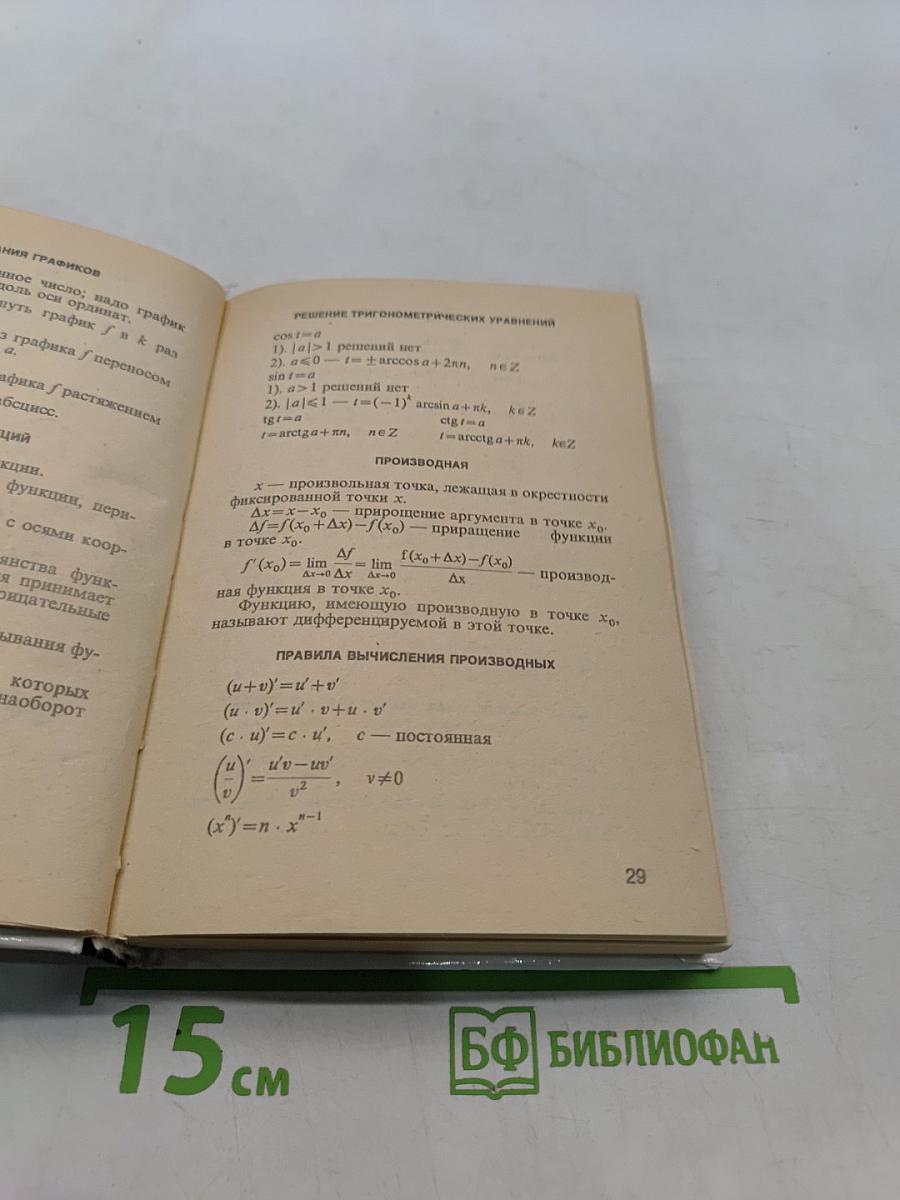 АНИЯ ГРАФИКОВ
нное число; надо график
доль оси ординат.
нуть график f в k раз
з графика f переносом
a.
афика f растяжением
бсцисс.
ций
кции.
функции, пери-
с осями коор-
янства функ-
я принимает
рицательные
ывания фу-
которых
наоборот
РЕШЕНИЕ ТРИГОНОМЕТРИЧЕСКИХ УРАВНЕНИЙ
cos t = a
1). |a| > 1 решений нет
2). a ⩽ 0 — t = ± arccos a + 2πn, n ∈ Z
sin t = a
1). a > 1 решений нет
2). |a| ⩽ 1 — t = (−1)^k arcsin a + πk, k ∈ Z
tg t = a ctg t = a
t = arctg a + πn, n ∈ Z t = arcctg a + πk, k ∈ Z
ПРОИЗВОДНАЯ
x — произвольная точка, лежащая в окрестности
фиксированной точки x.
Δx = x − x₀ — прирощение аргумента в точке x₀.
Δf = f(x₀ + Δx) − f(x₀) — приращение функции
в точке x₀.
f′(x₀) = lim_{Δx→0} Δf/Δx = lim_{Δx→0} (f(x₀ + Δx) − f(x₀))/Δx — производ-
ная функция в точке x₀.
Функцию, имеющую производную в точке x₀,
называют дифференцируемой в этой точке.
ПРАВИЛА ВЫЧИСЛЕНИЯ ПРОИЗВОДНЫХ
(u + v)′ = u′ + v′
(u · v)′ = u′ · v + u · v′
(c · u)′ = c · u′, c — постоянная
(u/v)′ = (u′v − uv′)/v², v ≠ 0
(x^n)′ = n · x^{n−1}
29
15 см
БФ БИБЛИОФАН